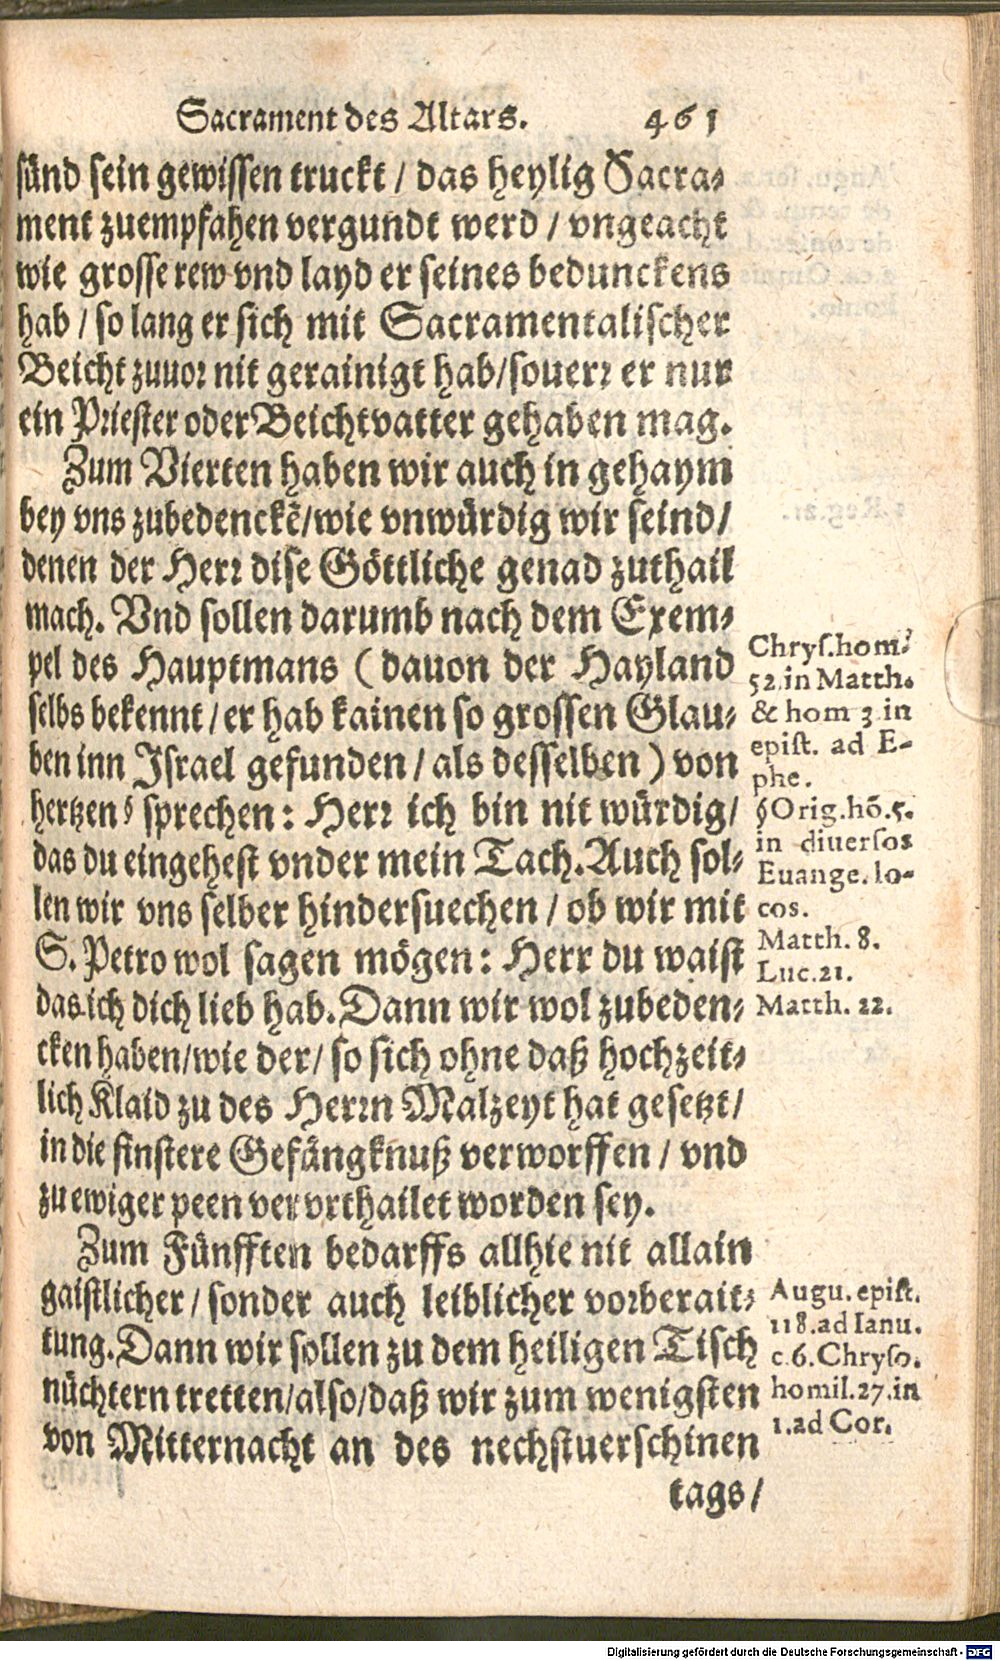 Sacrament des Altars. 461
sünd sein gewissen truckt / das heylig Sacra-
ment zuempfahen vergundt werd / vngeacht
wie grosse rew vnd layd er seines bedunckens
hab / so lang er sich mit Sacramentalischer
Beicht zuuor nit gerainigt hab/souerr er nur
ein Priester oder Beichtvatter gehaben mag.
Zum Vierten haben wir auch in gehaym
bey vns zubedenckē/wie vnwürdig wir seind/
denen der Herr dise Göttliche genad zuthail
mach. Vnd sollen darumb nach dem Exem-
pel des Hauptmans ( dauon der Hayland
selbs bekennt / er hab kainen so grossen Glau-
ben inn Israel gefunden / als desselben ) von
hertzen § sprechen : Herr ich bin nit würdig/
das du eingehest vnder mein Tach. Auch sol-
len wir vns selber hindersuechen / ob wir mit
S. Petro wol sagen mögen : Herr du waist
das ich dich lieb hab. Dann wir wol zubeden-
cken haben/wie der/ so sich ohne daß hochzeit-
lich Klaid zu des Herrn Malzeyt hat gesetzt/
in die finstere Gefängknuß verworffen / vnd
zu ewiger peen ver vrthailet worden sey.
Zum Fünfften bedarffs allhie nit allain
gaistlicher / sonder auch leiblicher vorberait-
tung. Dann wir sollen zu dem heiligen Tisch
nüchtern tretten/also/daß wir zum wenigsten
von Mitternacht an des nechstuerschinen
tags/
Chrys.hom.
52.in Matth.
& hom 3 in
epist. ad E-
phe.
§Orig.hō.5.
in diuersos
Euange.lo-
cos.
Matth. 8.
Luc.21.
Matth. 22.
Augu. epist.
118.ad Ianu.
c.6.Chryso.
homil.27.in
1.ad Cor.
Digitalisierung gefördert durch die Deutsche Forschungsgemeinschaft - DFG